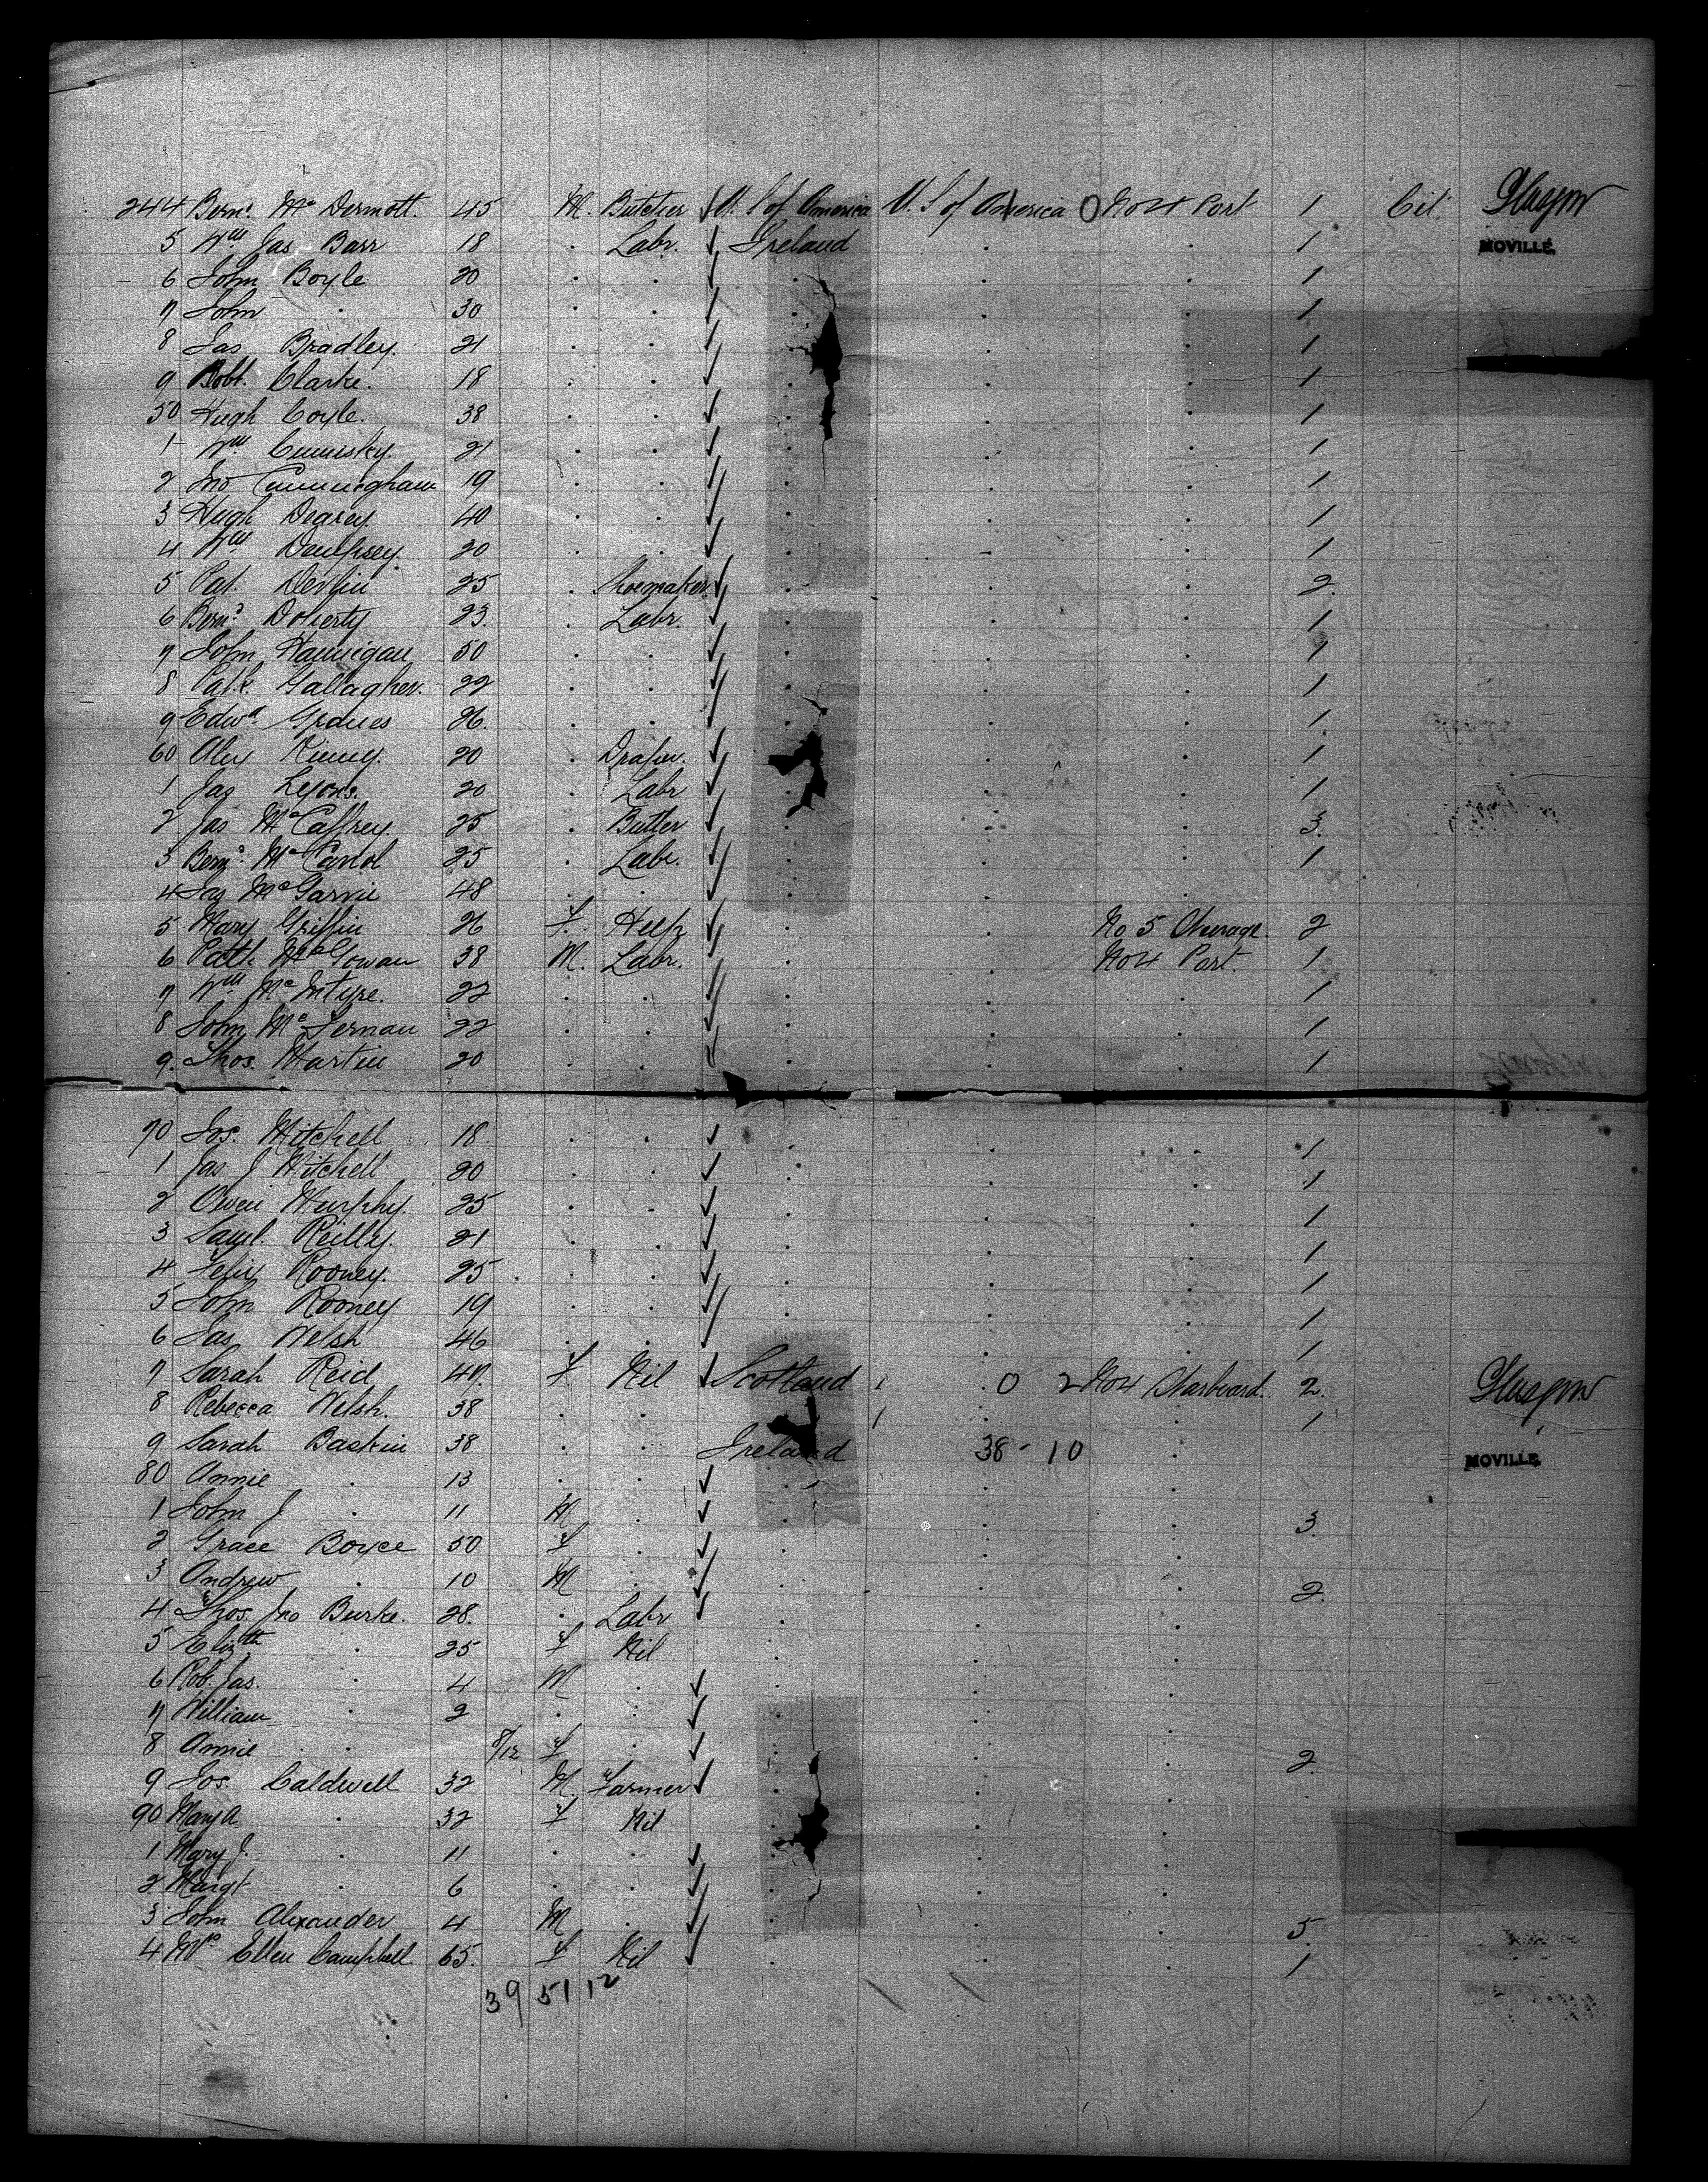 244 Bern.d Mc Dermott. 45 M. Butcher √ U. S of America U. S of America 0 No 4 Port 1 Cit Glasgow
5 Wm Jas Barr 18 . Labr. √ Ireland . . 1 MOVILLE
6 John Boyle 20 . . √ . . . 1
7 John . 30 . . √ . . . 1
8 Jas Bradley. 21 . . √ . . . 1
9 Robt. Clarke. 18 . . √ . . . 1
50 Hugh Coyle. 38 . . √ . . . 1
1 Wm Cumisky. 21 . . √ . . . 1
2 Jno Cunningham 19 . . √ . . . 1
3 Hugh Degrey. 40 . . √ . . . 1
4 Wm Dempsey. 20 . . √ . . . 1
5 Pat. Devlin 25 . Shoemaker √ . . . 2.
6 Bern.d Doherty 23. . Labr. √ . . . 1
7 John Hannigan 50 . . √ . . . 1
8 Patk. Gallagher. 22 . . √ . . . 1
9 Edwd. 26. . . √ . . . 1
60 Alex 20 . Draper. √ . . . 1
1 Jas Lyons. 20 . Labr √ . . . 1
2 Jas McCaffrey. 25 . Butler √ . . . 3.
3 Bern.d McCarrol 25 . Labr. √ . . . 1
4 Jas McGarvie 48 . . √ . . .
5 Mary Griffin 26 F. Help √ . . No 5 Steerage. 2
6 Patk McGowan 38 M. Labr. √ . . No 4 Port. 1
7 Wm McIntyre. 22 . . √ . . . 1
8 John McTernan 22 . . √ . . . 1
9. Thos. Martin 20 . . √ . . . 1
70 Jos. Mitchell 18 . . √ . . . 1
1 Jas J Mitchell 20 . . √ . . . 1
2 Owen Murphy. 25 . . √ . . . 1
3 Saml. Reilly. 21 . . √ . . . 1
4 Felix Rooney. 25 . . √ . . . 1
5 John Rooney 19 . . √ . . . 1
6 Jas Welsh 46 . . √ . . . 1
7 Sarah Reid 47. F. Nil √ Scotland 1 . 0 2 No 4 Starboard. 2. Glasgow
8 Rebecca Welsh. 38 . . 1 . . 1
9 Sarah Baskin 38 . . Ireland 38 - 10 . MOVILLE
80 Annie . 13 . . √ . . .
1 John J . 11 M . √ . . . 3.
2 Grace Boyce 50 F . √ . . .
3 Andrew . 10 M . √ . . . 2.
4 Thos. Jno Burke. 28. . Labr √ . . .
5 Elizth . 25 F Nil . . .
6 Rob. Jas. . 4 M . √ . . .
7 William . 2 . . √ . . .
8 Annie . 8/12 F . √ . . . 2.
9 Jos. Caldwell 32 M. Farmer √ . . .
90 Mary A . 32 F Nil . . .
1 Mary J. . 11 . . √ . . .
2 Margt . 6 . . √ . . .
3 John Alexander 4 M . √ . . . 5.
4 Mrs Ellen Campbell 65. F Nil √ . . . 1
39 51 12